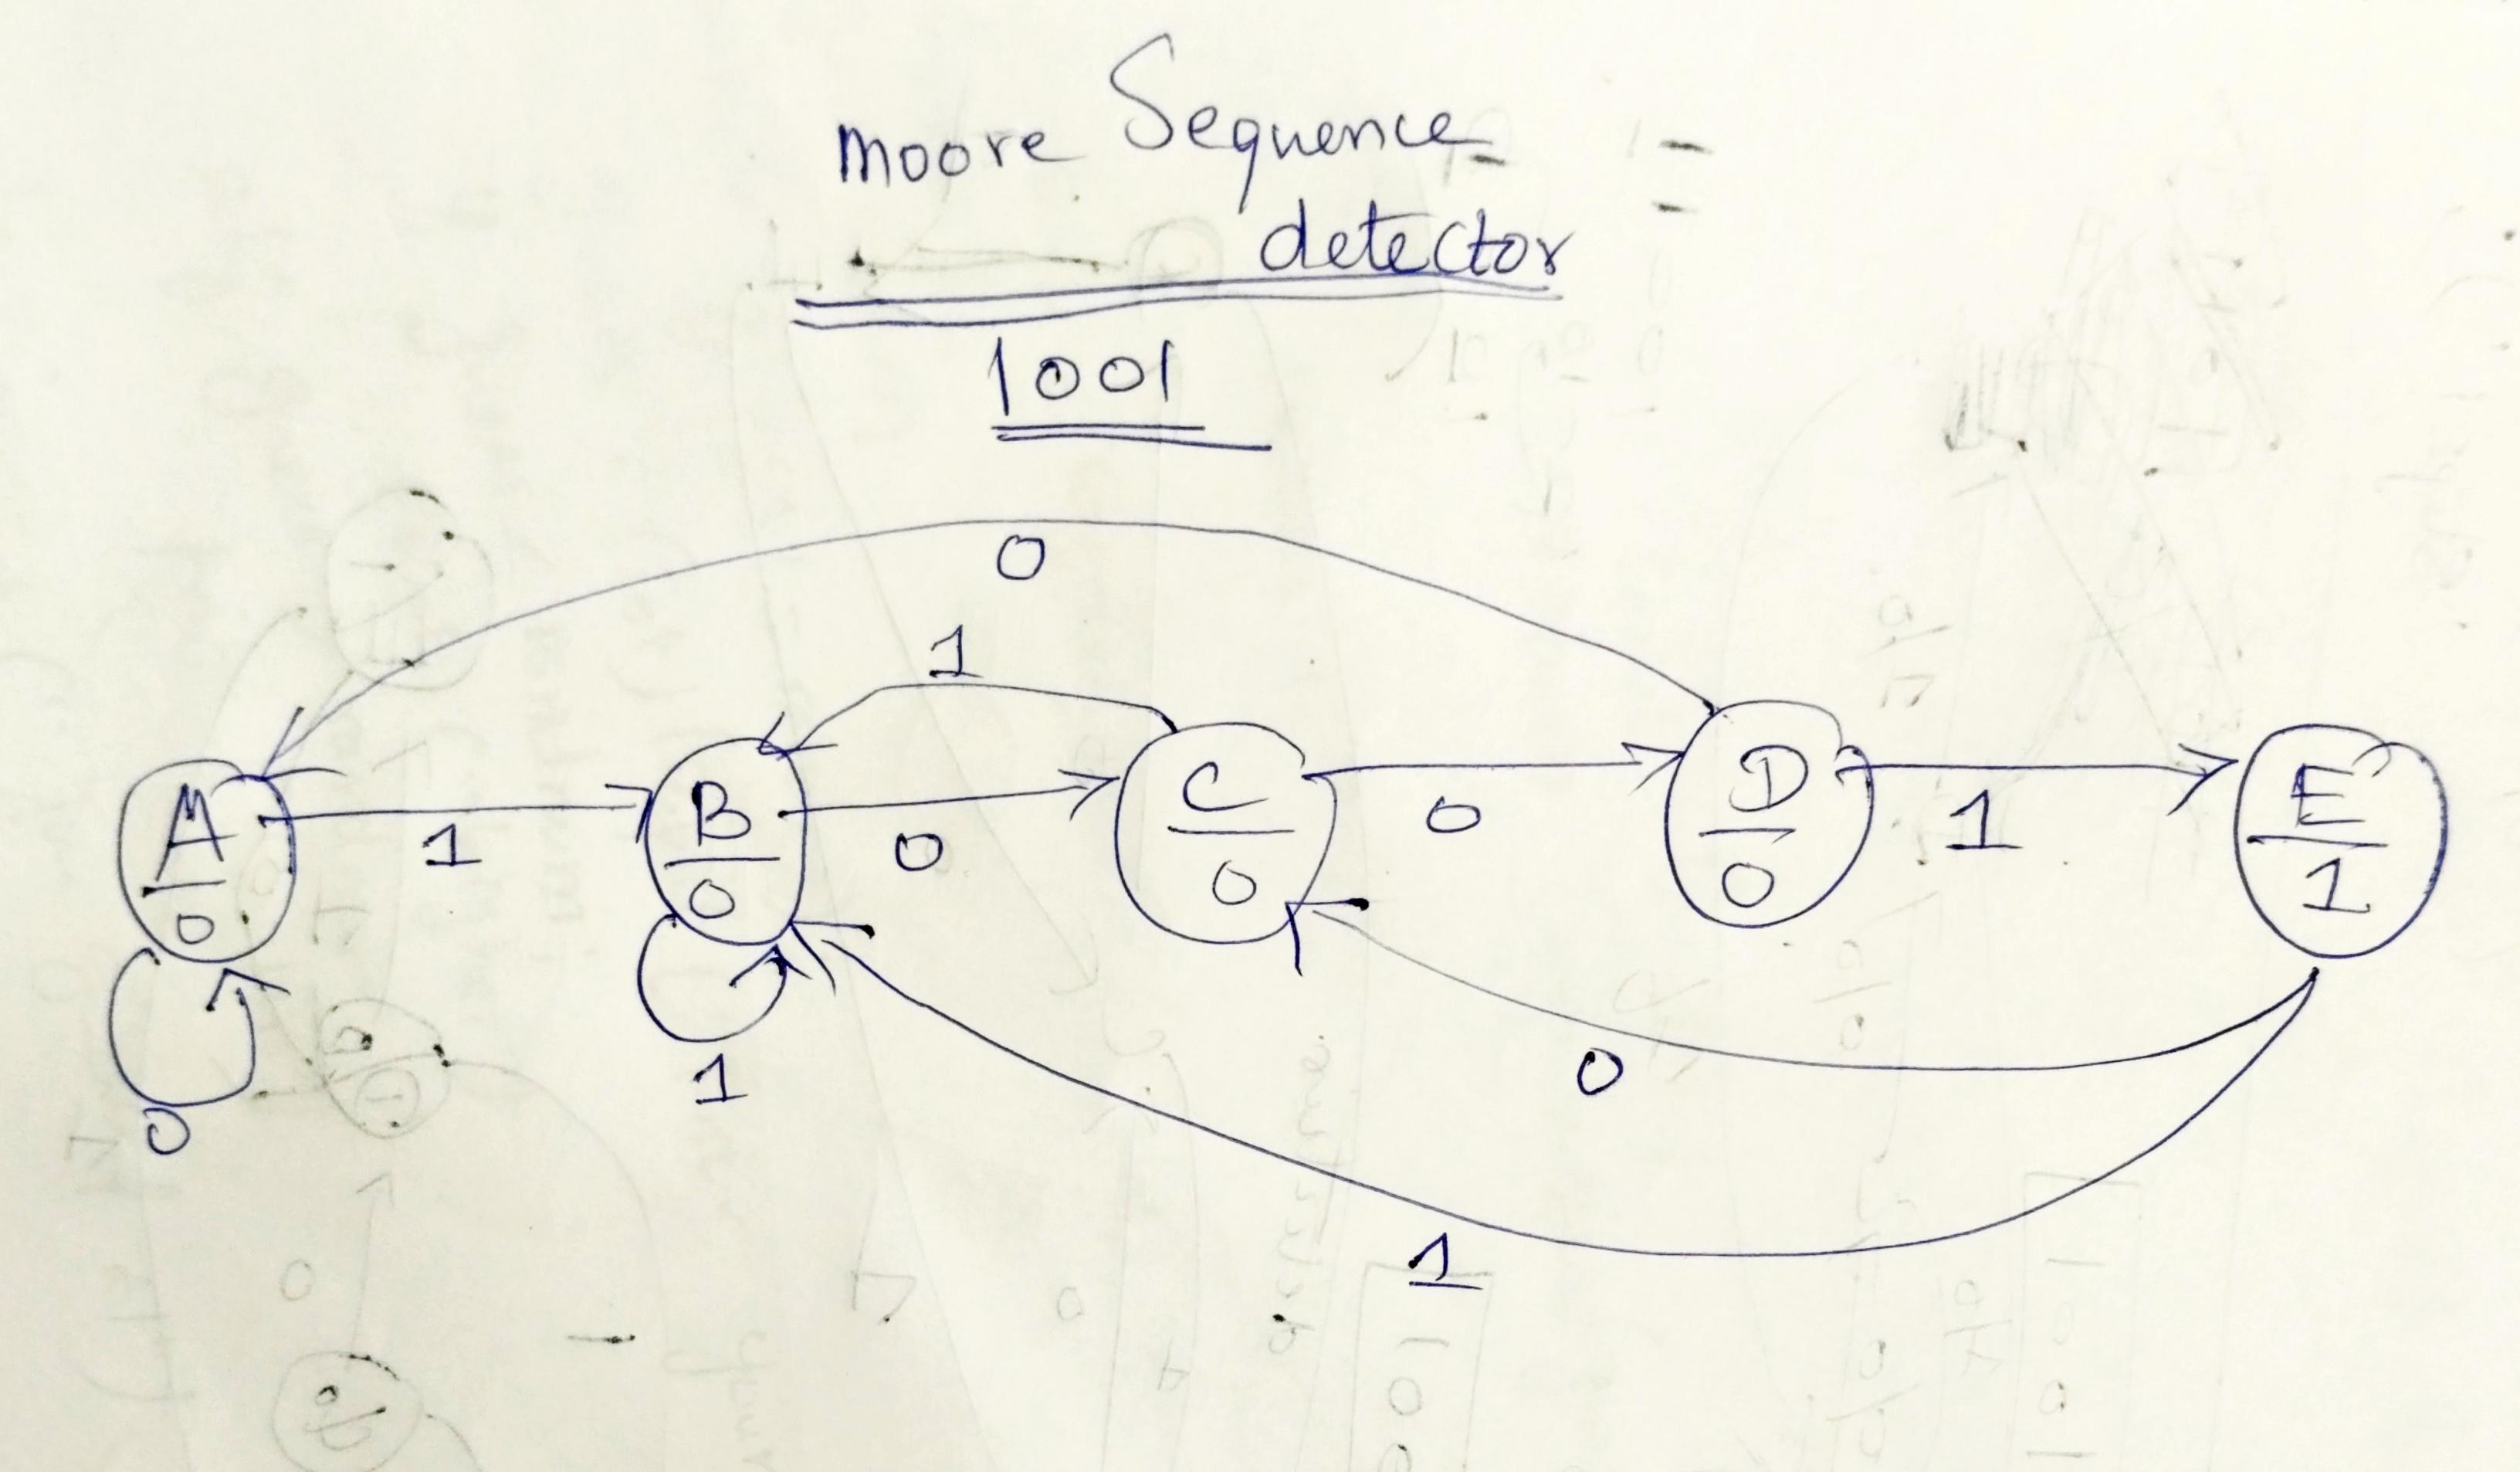 moore Sequence
detector
1001
0
1
A
0
1
B
0
0
C
0
0
D
0
1
E
1
0
1
0
1